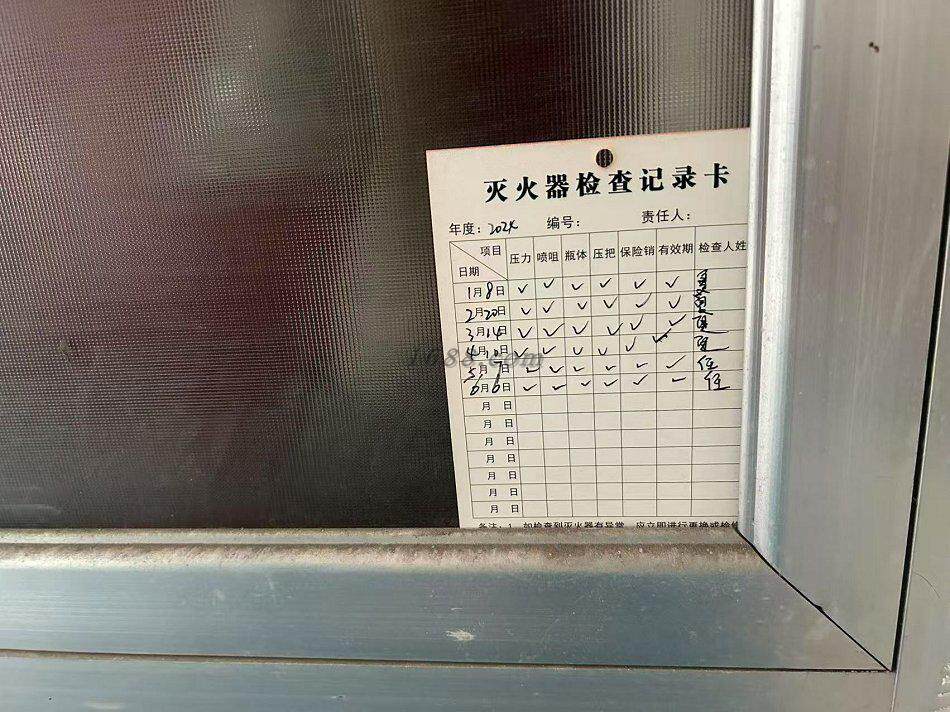 灭火器检查记录卡
年度：2024 编号： 责任人：
项目 日期 压力 喷咀 瓶体 压把 保险销 有效期 检查人姓
1月8日 ✓ ✓ ✓ ✓ ✓ ✓
2月20日 ✓ ✓ ✓ ✓ ✓ ✓
3月14日 ✓ ✓ ✓ ✓ ✓ ✓
4月10日 ✓ ✓ ✓ ✓ ✓ ✓
5月7日 ✓ ✓ ✓ ✓ ✓ ✓ 任
6月6日 ✓ ✓ ✓ ✓ ✓ ✓ 任
月 日
月 日
月 日
月 日
月 日
月 日
月 日
备注：1、如检查到灭火器有异常，应立即进行更换或检修
1688.com